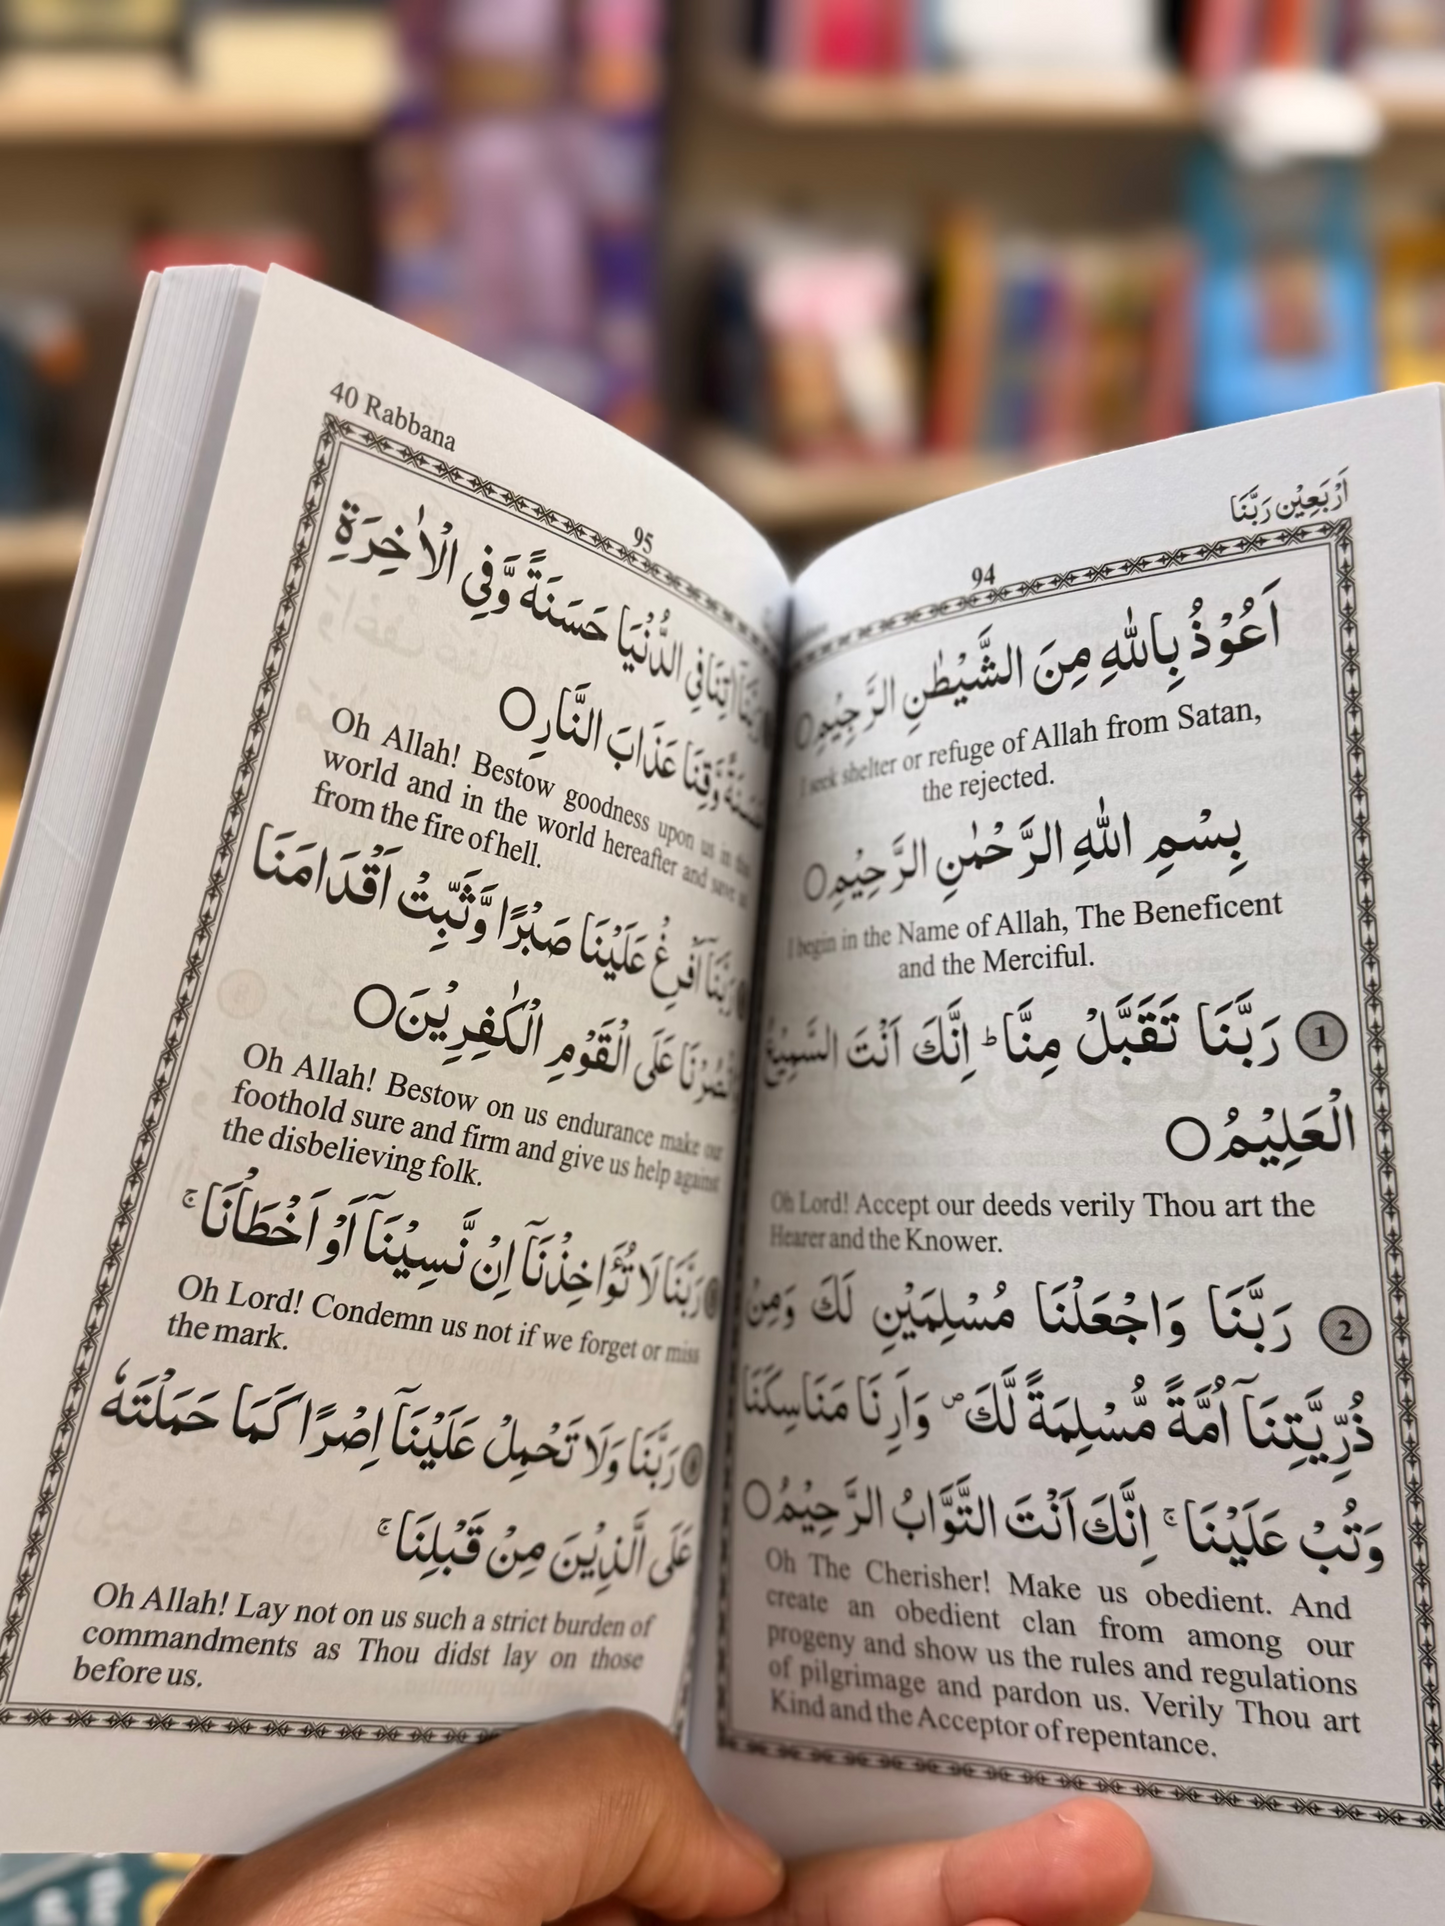 اَرْبَعِيْن رَبَّنَا
94
اَعُوْذُ بِاللّٰهِ مِنَ الشَّيْطٰنِ الرَّجِيْمِ○
I seek shelter or refuge of Allah from Satan,
the rejected.
بِسْمِ اللّٰهِ الرَّحْمٰنِ الرَّحِيْمِ○
I begin in the Name of Allah, The Beneficent
and the Merciful.
1 رَبَّنَا تَقَبَّلْ مِنَّا ؕ اِنَّكَ اَنْتَ السَّمِيْعُ
الْعَلِيْمُ○
Oh Lord! Accept our deeds verily Thou art the
Hearer and the Knower.
2 رَبَّنَا وَاجْعَلْنَا مُسْلِمَيْنِ لَكَ وَمِنْ
ذُرِّيَّتِنَآ اُمَّةً مُّسْلِمَةً لَّكَ ۪ وَاَرِنَا مَنَاسِكَنَا
وَتُبْ عَلَيْنَا ۚ اِنَّكَ اَنْتَ التَّوَّابُ الرَّحِيْمُ○
Oh The Cherisher! Make us obedient. And
create an obedient clan from among our
progeny and show us the rules and regulations
of pilgrimage and pardon us. Verily Thou art
Kind and the Acceptor of repentance.
40 Rabbana
95
رَبَّنَآ اٰتِنَا فِي الدُّنْيَا حَسَنَةً وَّفِي الْاٰخِرَةِ
حَسَنَةً وَّقِنَا عَذَابَ النَّارِ○
Oh Allah! Bestow goodness upon us in this
world and in the world hereafter and save us
from the fire of hell.
رَبَّنَآ اَفْرِغْ عَلَيْنَا صَبْرًا وَّثَبِّتْ اَقْدَامَنَا
وَانْصُرْنَا عَلَى الْقَوْمِ الْكٰفِرِيْنَ○
Oh Allah! Bestow on us endurance make our
foothold sure and firm and give us help against
the disbelieving folk.
رَبَّنَا لَا تُؤَاخِذْنَآ اِنْ نَّسِيْنَآ اَوْ اَخْطَاْنَا ۚ
Oh Lord! Condemn us not if we forget or miss
the mark.
رَبَّنَا وَلَا تَحْمِلْ عَلَيْنَآ اِصْرًا كَمَا حَمَلْتَهٗ
عَلَى الَّذِيْنَ مِنْ قَبْلِنَا ۚ
Oh Allah! Lay not on us such a strict burden of
commandments as Thou didst lay on those
before us.